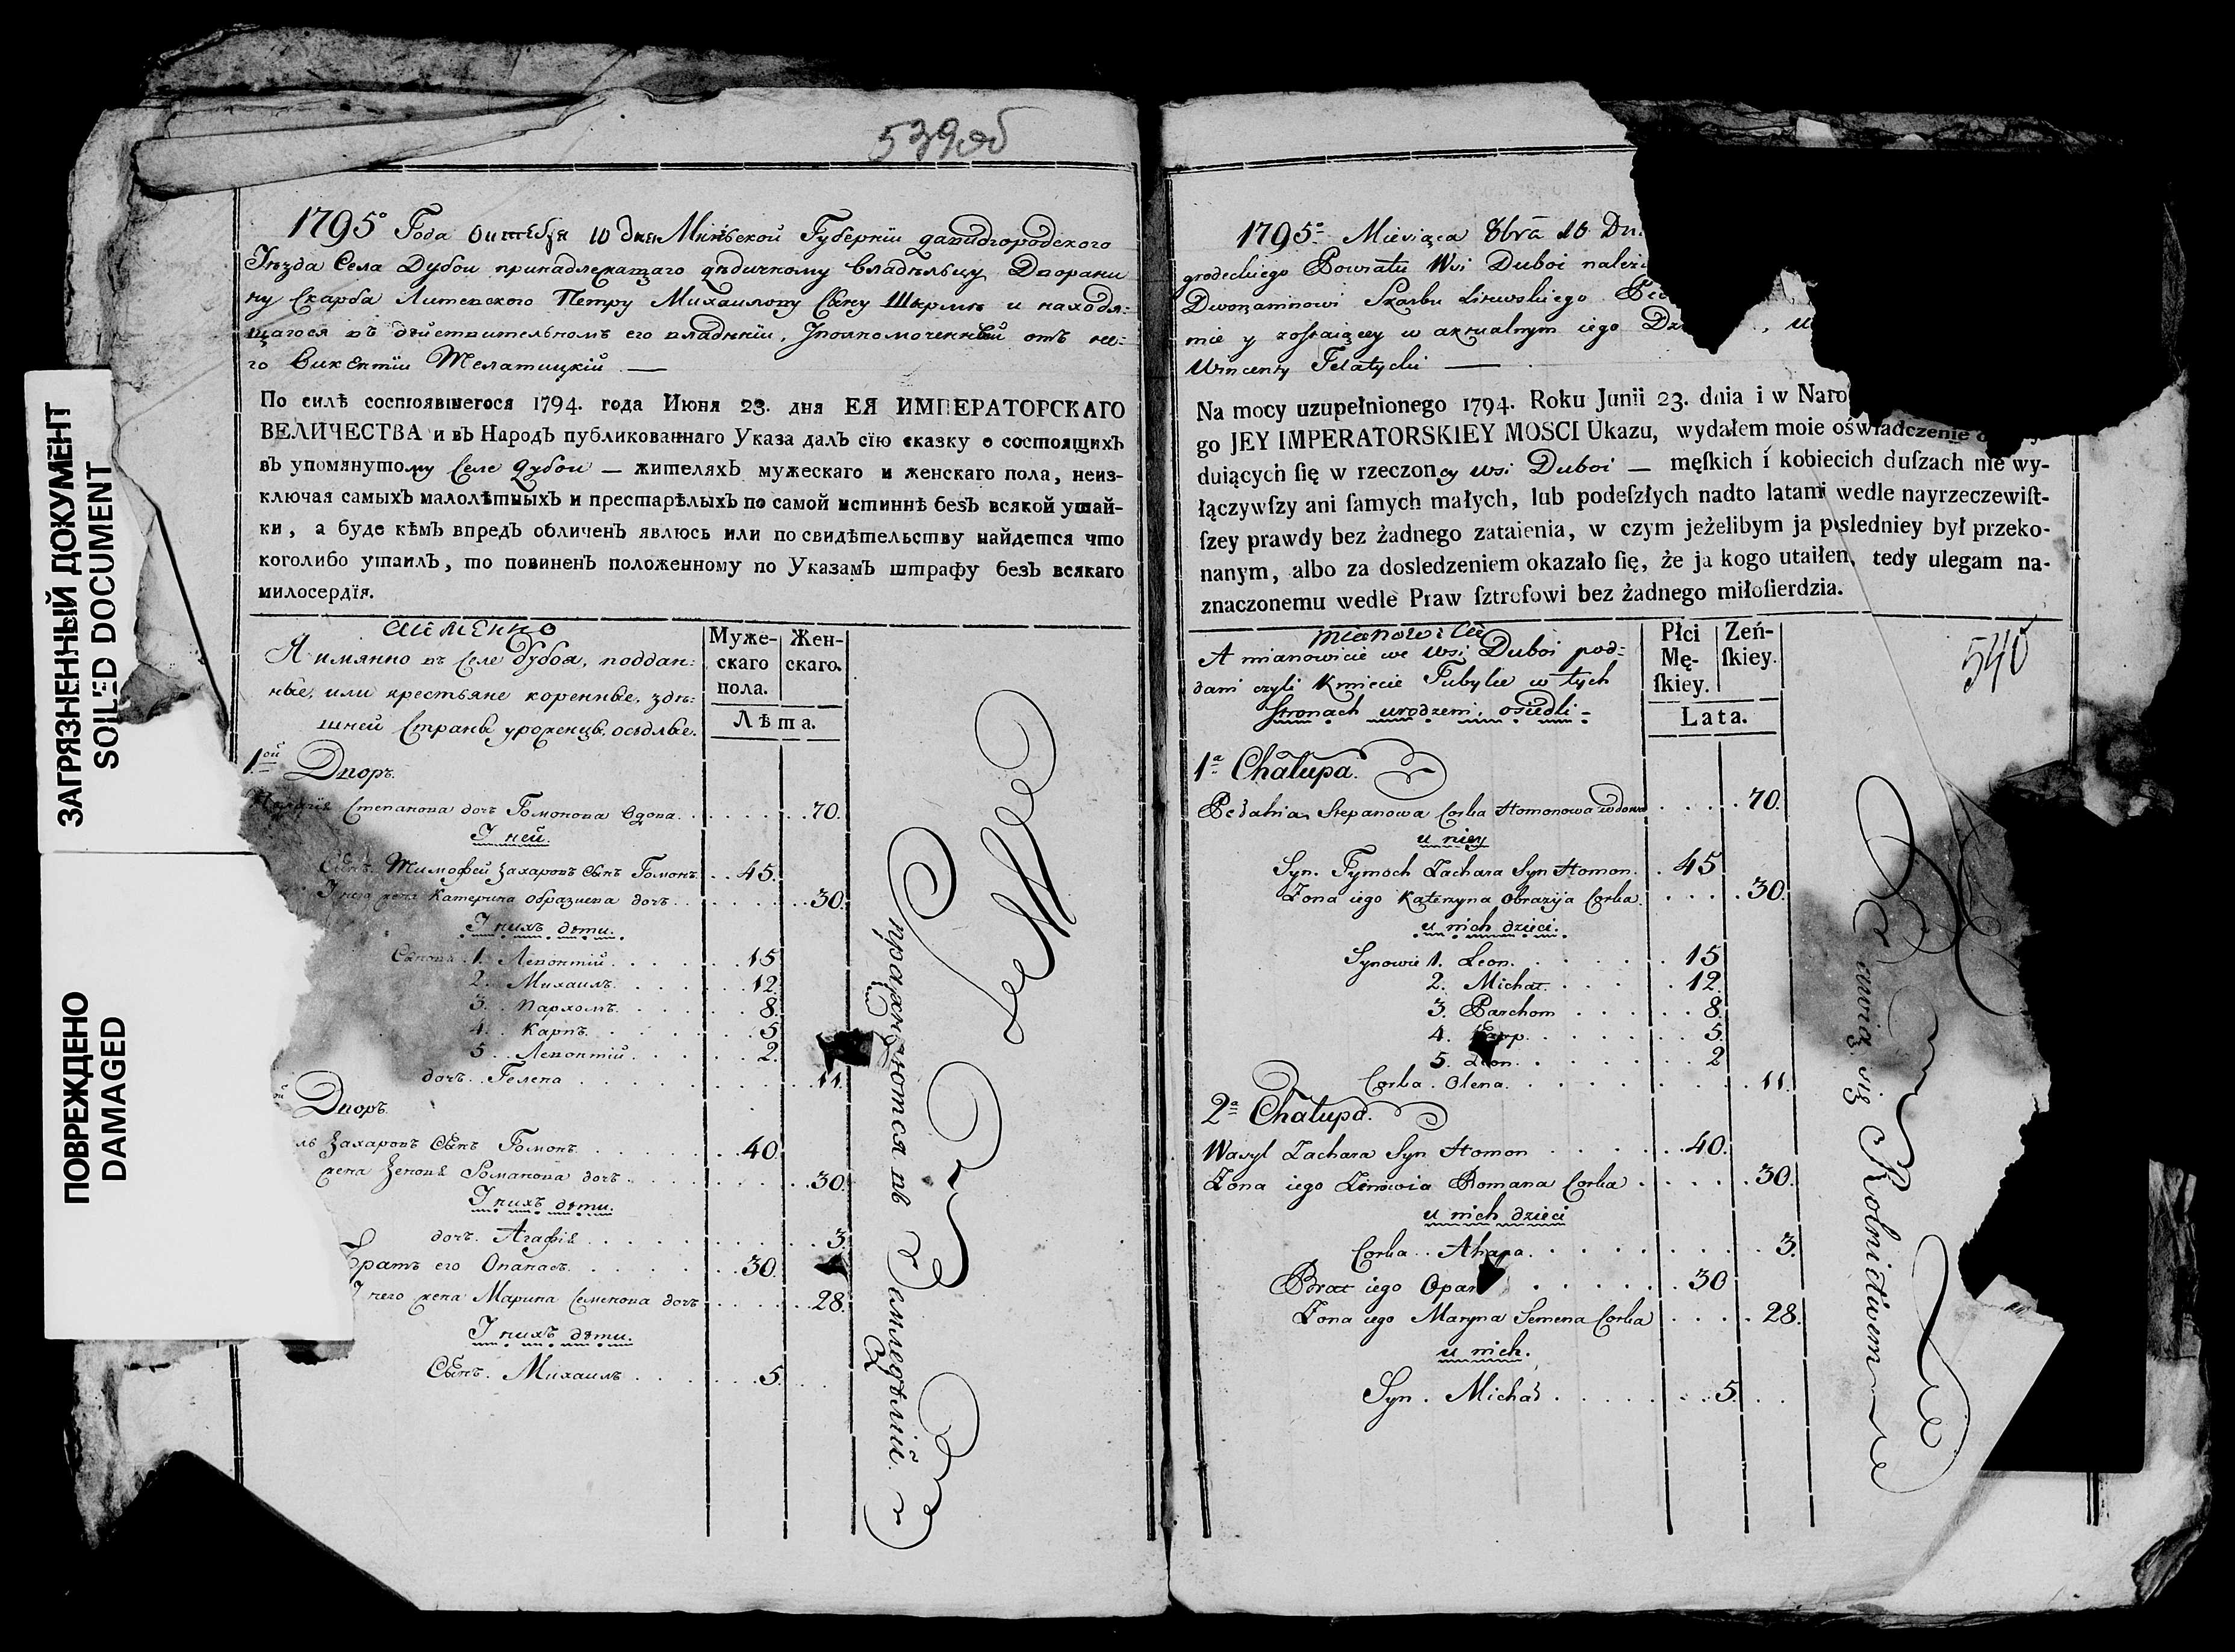 ЗАГРЯЗНЕННЫЙ ДОКУМЕНТ
SOILED DOCUMENT
ПОВРЕЖДЕНО
DAMAGED
539об
1795º Года Октября 10 дня Минской Губернїи давидгородского
Уѣзда Села Дубои принадлежащаго дѣдичному владѣльцу Дворяни
ну Скарба Литевского Петру Михаилову Сыну Ширмѣ и находя:
щагося въ дѣйствительномъ его владѣнїи, Уполномоченный отъ не:
го Викентїи Телатицкїй —
По силѣ состоявшегося 1794. года Июня 23. дня ЕЯ ИМПЕРАТОРСКАГО
ВЕЛИЧЕСТВА и въ Народъ публикованнаго Указа далъ сїю сказку о состоящихъ
въ упомянутому Селе Дубои — жителяхъ мужескаго и женскаго пола, неиз-
ключая самыхъ малолѣтныхъ и престарѣлыхъ по самой истиннѣ безъ всякой утай-
ки, а буде кѣмъ впредъ обличенъ явлюсь или по свидѣтельству найдется что
коголибо утаилъ, то повиненъ положенному по Указамъ штрафу безъ всякаго
милосердїя.
аименно
А имянно въ Селе Дубоя, поддан:
ные, или крестьяне коренные, здѣ:
шней Страны уроженцы, осѣдлые.
Муже-
скаго
пола.
Жен-
скаго.
Лѣта.
1ой Дворъ.
Степанова дочь Гомонова Вдова. 70.
У ней.
Сынъ. Тимофей Захаровъ Сынъ Гомонъ. 45.
У него жена Катерина Образцева дочь. 30.
У нихъ дѣти.
Сыновя. 1. Левонтїй. 15
2. Михаилъ. 12.
3. Пархомъ. 8.
4. Карпъ. 5
5. Левонтїй. 2.
дочь. Гелена 11.
ой Дворъ.
ль Захаровъ Сынъ Гомонъ. 40.
жена Зеновя Романова дочь. 30.
У нихъ дѣти.
дочь. Агафїя. 3
Братъ его Опанасъ. 30.
У него жена Марина Семенова дочь 28.
У нихъ дѣти.
Сынъ. Михаилъ 5.
упражняются въ Земледѣлїй.
1795º Miesiąca 8bra 10 Dn.
grodeckiego Powiatu Wsi Duboi należą
Dworzaninowi Skarbu Litewskiego
mie y zostaiącey w aktualnym iego
Wincenty Telatycki —
Na mocy uzupełnionego 1794. Roku Junii 23. dnia i w Naro
go JEY IMPERATORSKIEY MOSCI Ukazu, wydałem moie oświadczenie
duiących ſię w rzeczoney wsi Duboi — męſkich i kobiecich duſzach nie wy-
łączywſzy ani ſamych małych, lub podeſzłych nadto latami wedle nayrzeczewiſt-
ſzey prawdy bez żadnego zataienia, w czym jeżelibym ja posledniey był przeko-
nanym, albo za dosledzeniem okazało ſię, że ja kogo utaiłem, tedy ulegam na-
znaczonemu wedle Praw ſztrofowi bez żadnego miłoſierdzia.
mianowicie
A mianowicie we wsi Duboi pod:
dani czyli Kmiecie Tubylce w tych
stronach urodzeni, osiedli -
Płci
Mę-
ſkiey.
Zeń-
ſkiey.
Lata.
540
1ª Chałupa.
Pedahia Stepanowa Corka Homonowa wdowa 70.
u niey
Syn. Tymoch Zachara Syn Homon. 45
Zona iego Katerzyna Obrazija Corka. 30.
u nich dzieci.
Synowie 1. Leon. 15
2. Michał. 12.
3. Parchom 8.
4. Karp. 5.
5. Leon. 2
Corka. Olena. 11.
2ª Chałupa.
Wasyl Zachara Syn Homon 40.
Zona iego Zinowia Romana Corka 30.
u nich dzieci
Corka. Ahapa. 3.
Brat iego Opan 30
Zona iego Maryna Semena Corka 28.
u nich.
Syn. Michał 5.
się Rolnictwem